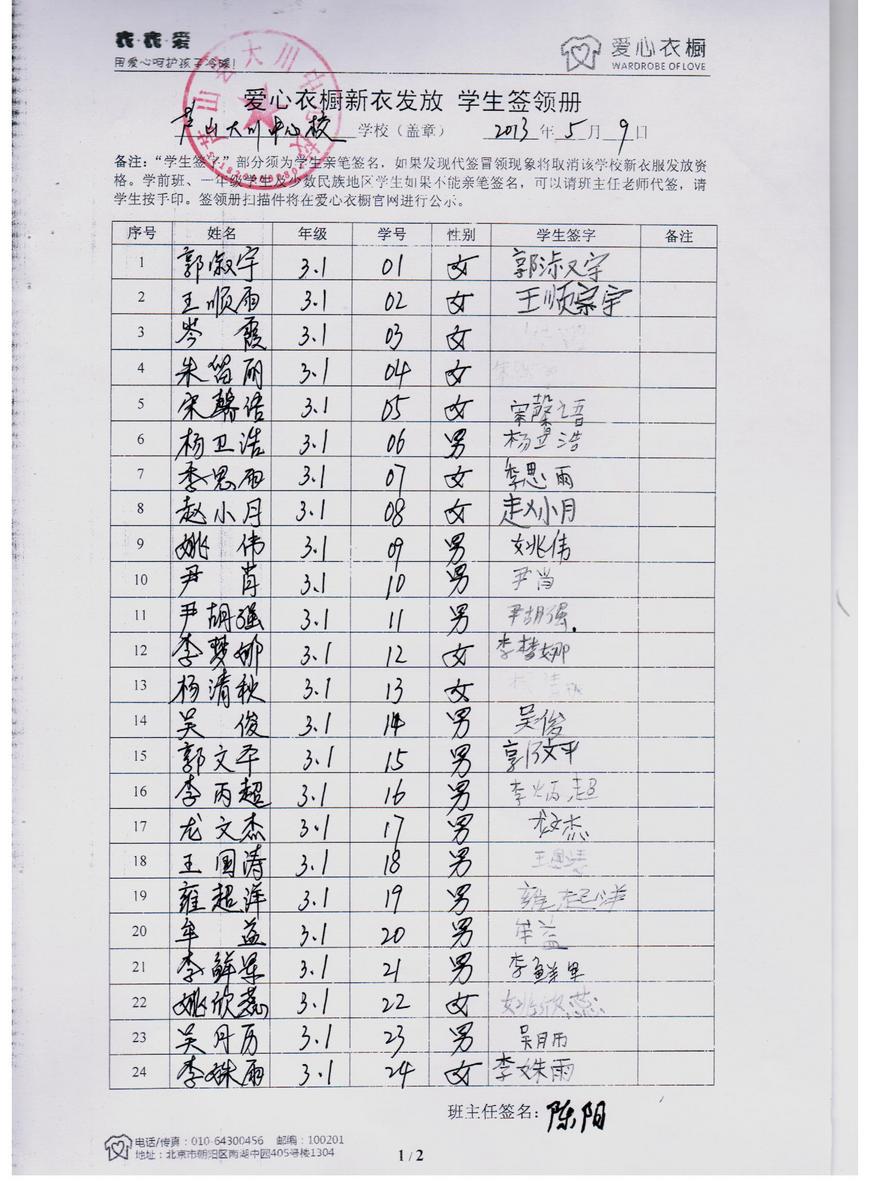 衣·衣·爱
用爱心呵护孩子冷暖!
爱心衣橱
WARDROBE OF LOVE
爱心衣橱新衣发放 学生签领册
芦山大川中心校 学校（盖章） 2013 年 5 月 9 日
备注：“学生签字”部分须为学生亲笔签名，如果发现代签冒领现象将取消该学校新衣服发放资
格。学前班、一年级学生及少数民族地区学生如果不能亲笔签名，可以请班主任老师代签，请
学生按手印。签领册扫描件将在爱心衣橱官网进行公示。
序号 姓名 年级 学号 性别 学生签字 备注
1 郭淑宇 3.1 01 女 郭淑宇
2 王顺雨 3.1 02 女 王顺宗宇
3 岑霞 3.1 03 女
4 朱笛丽 3.1 04 女
5 宋馨语 3.1 05 女 宋馨语
6 杨卫浩 3.1 06 男 杨卫浩
7 李思雨 3.1 07 女 李思雨
8 赵小月 3.1 08 女 赵小月
9 姚伟 3.1 09 男 姚伟
10 尹肖 3.1 10 男 尹肖
11 尹胡强 3.1 11 男 尹胡强
12 李梦娜 3.1 12 女 李梦娜
13 杨清秋 3.1 13 女 杨清秋
14 吴俊 3.1 14 男 吴俊
15 郭文平 3.1 15 男 郭文平
16 李丙超 3.1 16 男 李炳超
17 龙文杰 3.1 17 男 龙文杰
18 王国涛 3.1 18 男 王国涛
19 雍超洋 3.1 19 男 雍超洋
20 牟益 3.1 20 男 牟益
21 李鲜果 3.1 21 男 李鲜果
22 姚欣蕊 3.1 22 女 姚欣蕊
23 吴丹历 3.1 23 男
24 李姝雨 3.1 24 女 李姝雨
班主任签名：陈阳
电话/传真：010-64300456 邮编：100201
地址：北京市朝阳区南湖中园405号楼1304
1 / 2